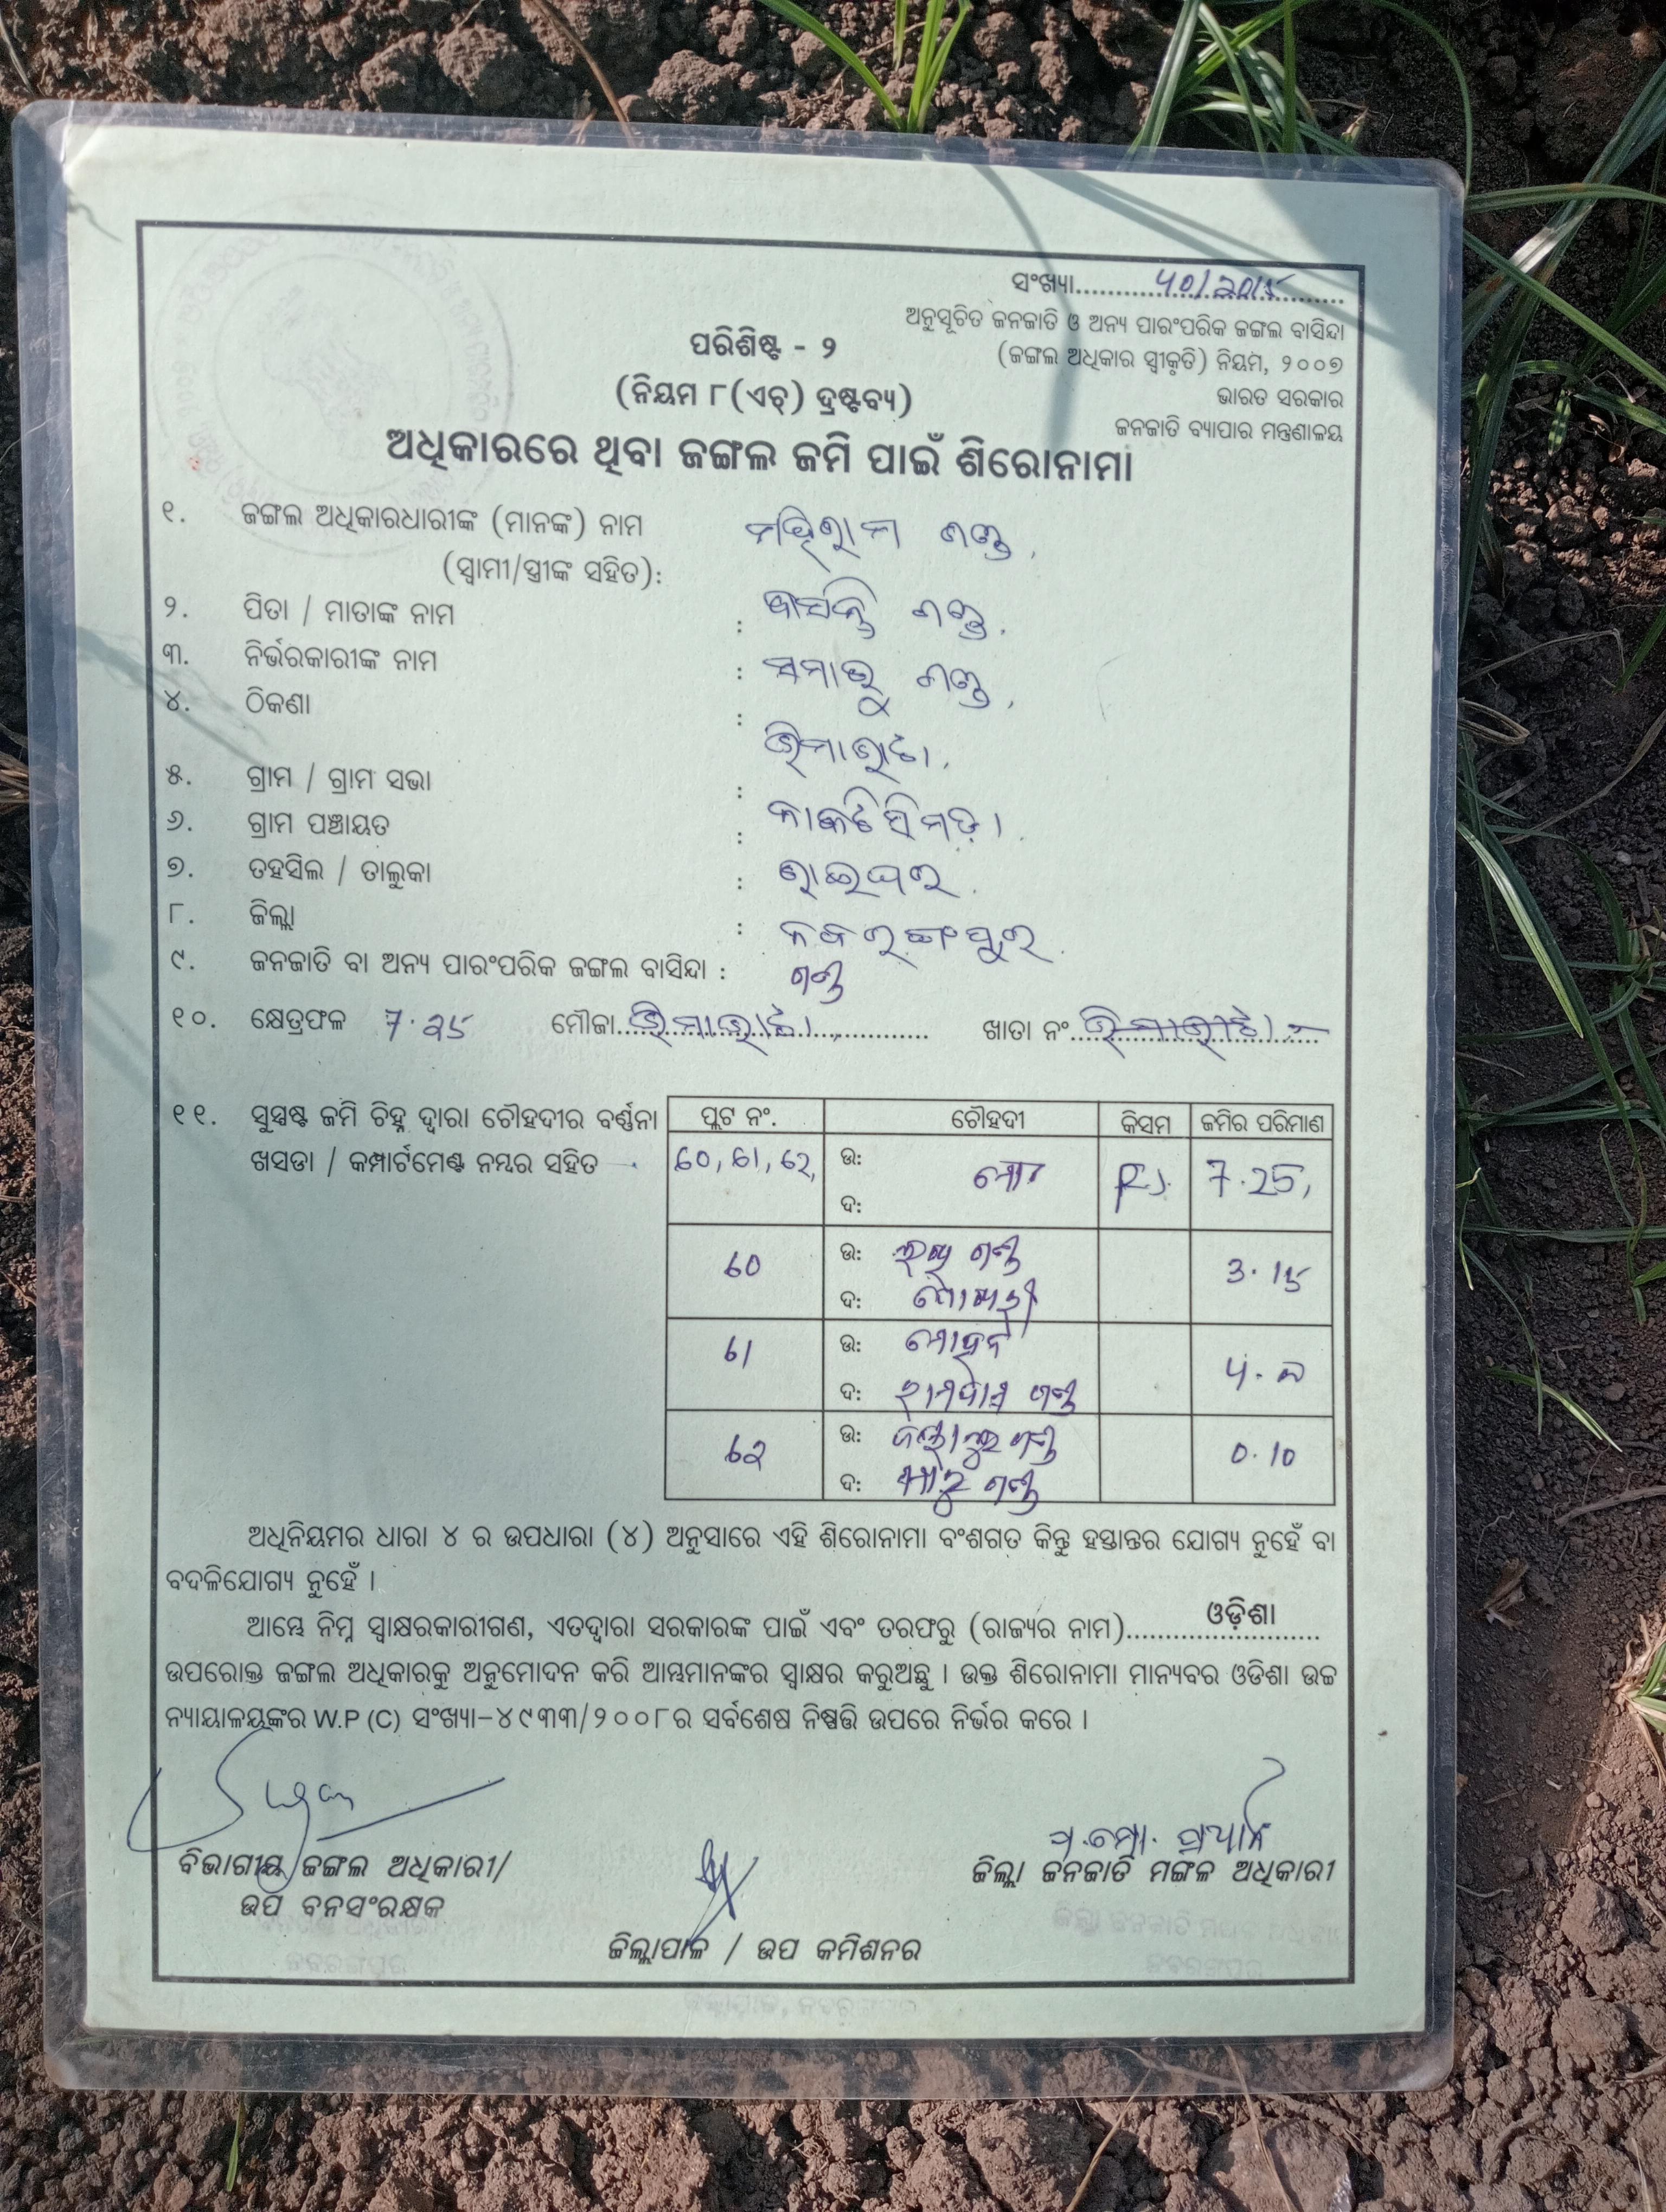 ସଂଖ୍ୟା
ଅନୁସୂଚିତ ଜନଜାତି ଓ ଅନ୍ୟ ପାରଂପରିକ ଜଙ୍ଗଲ ବାସିନ୍ଦା
(ଜଙ୍ଗଲ ଅଧିକାର ସ୍ୱୀକୃତି) ନିୟମ, ୨୦୦୭
ଭାରତ ସରକାର
ଜନଜାତି ବ୍ୟାପାର ମନ୍ତ୍ରଣାଳୟ
ପରିଶିଷ୍ଟ - ୨
(ନିୟମ ୮(ଏଚ୍) ଦ୍ରଷ୍ଟବ୍ୟ)
ଅଧିକାରରେ ଥିବା ଜଙ୍ଗଲ ଜମି ପାଇଁ ଶିରୋନାମା
୧. ଜଙ୍ଗଲ ଅଧିକାରଧାରୀଙ୍କ (ମାନଙ୍କ) ନାମ ଗଣ୍ଡ
(ସ୍ୱାମୀ/ସ୍ତ୍ରୀଙ୍କ ସହିତ):
୨. ପିତା / ମାତାଙ୍କ ନାମ : ଗଣ୍ଡ
୩. ନିର୍ଭରକାରୀଙ୍କ ନାମ : ସମାରୁ ଗଣ୍ଡ
୪. ଠିକଣା :
୫. ଗ୍ରାମ / ଗ୍ରାମ ସଭା :
୬. ଗ୍ରାମ ପଞ୍ଚାୟତ :
୭. ତହସିଲ / ତାଲୁକା : ରାଇଘର
୮. ଜିଲ୍ଲା : ନବରଙ୍ଗପୁର
୯. ଜନଜାତି ବା ଅନ୍ୟ ପାରଂପରିକ ଜଙ୍ଗଲ ବାସିନ୍ଦା : ଗଣ୍ଡ
୧୦. କ୍ଷେତ୍ରଫଳ 7.25 ମୌଜା ଖାତା ନଂ
୧୧. ସୁସ୍ପଷ୍ଟ ଜମି ଚିହ୍ନ ଦ୍ୱାରା ଚୌହଦୀର ବର୍ଣ୍ଣନା
ଖସଡା / କମ୍ପାର୍ଟମେଣ୍ଟ ନମ୍ବର ସହିତ
ପ୍ଲଟ ନଂ. ଚୌହଦୀ କିସମ ଜମିର ପରିମାଣ
60, 61, 62, ଉ: 7.25,
ଦ:
60 ଉ: ଗଣ୍ଡ 3.15
ଦ:
61 ଉ: ମୋହନ
ଦ: ରାମଦାସ ଗଣ୍ଡ
62 ଉ: ଗଣ୍ଡ 0.10
ଦ: ଗଣ୍ଡ
ଅଧିନିୟମର ଧାରା ୪ ର ଉପଧାରା (୪) ଅନୁସାରେ ଏହି ଶିରୋନାମା ବଂଶଗତ କିନ୍ତୁ ହସ୍ତାନ୍ତର ଯୋଗ୍ୟ ନୁହେଁ ବା
ବଦଳିଯୋଗ୍ୟ ନୁହେଁ ।
ଆମ୍ଭେ ନିମ୍ନ ସ୍ୱାକ୍ଷରକାରୀଗଣ, ଏତଦ୍ୱାରା ସରକାରଙ୍କ ପାଇଁ ଏବଂ ତରଫରୁ (ରାଜ୍ୟର ନାମ) ଓଡ଼ିଶା
ଉପରୋକ୍ତ ଜଙ୍ଗଲ ଅଧିକାରକୁ ଅନୁମୋଦନ କରି ଆମ୍ଭମାନଙ୍କର ସ୍ୱାକ୍ଷର କରୁଅଛୁ । ଉକ୍ତ ଶିରୋନାମା ମାନ୍ୟବର ଓଡିଶା ଉଚ୍ଚ
ନ୍ୟାୟାଳୟଙ୍କର W.P (C) ସଂଖ୍ୟା-୪୯୩୩/୨୦୦୮ର ସର୍ବଶେଷ ନିଷ୍ପତ୍ତି ଉପରେ ନିର୍ଭର କରେ ।
ବିଭାଗୀୟ ଜଙ୍ଗଲ ଅଧିକାରୀ/
ଉପ ବନସଂରକ୍ଷକ
ଜିଲ୍ଲାପାଳ / ଉପ କମିଶନର
ଜିଲ୍ଲା ଜନଜାତି ମଙ୍ଗଳ ଅଧିକାରୀ